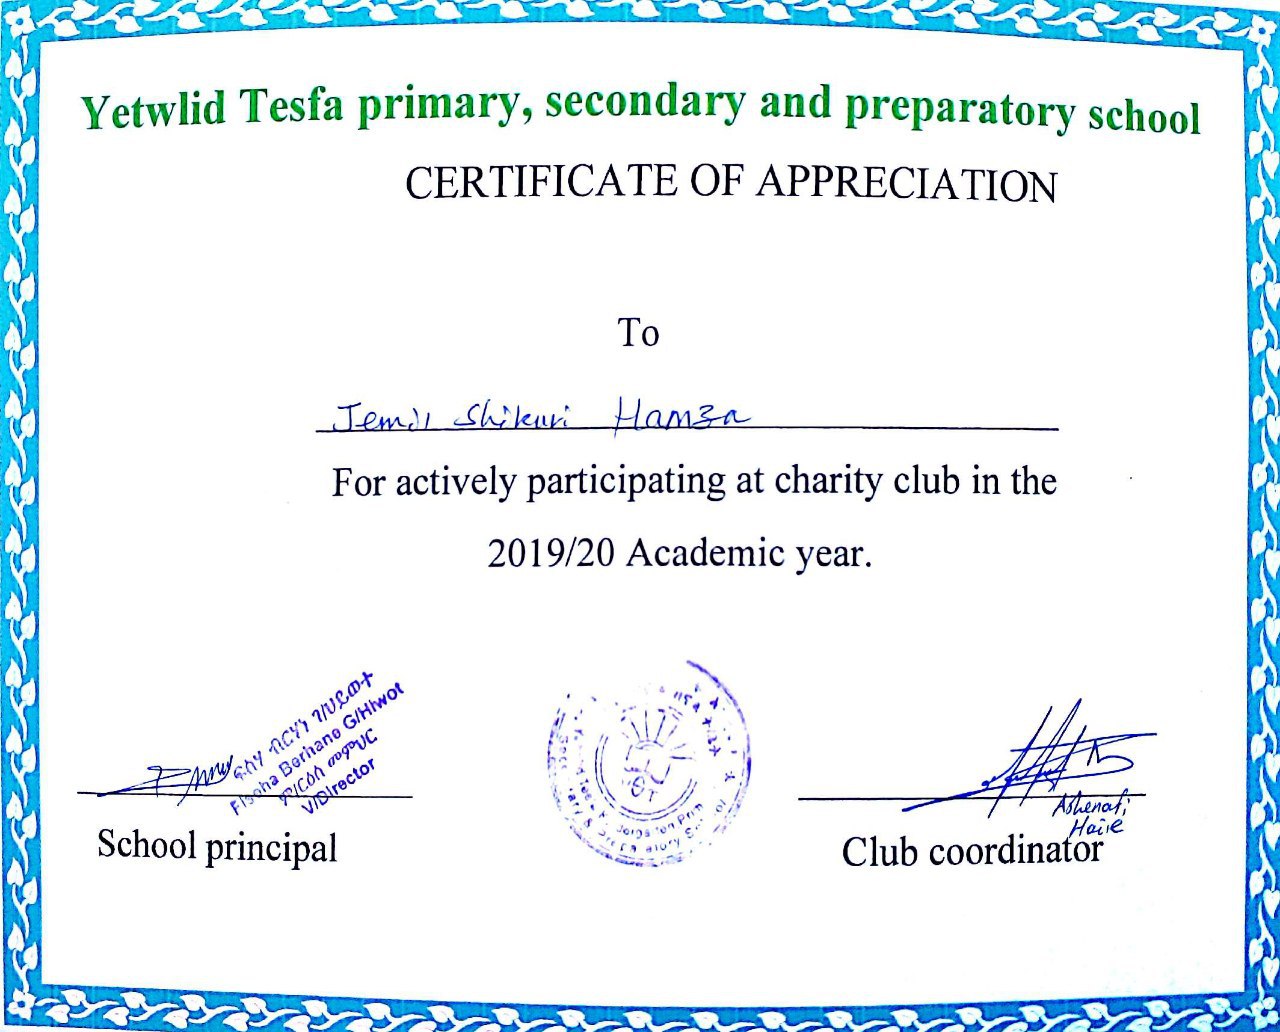 Yetwlid Tesfa primary, secondary and preparatory school
CERTIFICATE OF APPRECIATION
To
Jemil Shikuri Hamza
For actively participating at charity club in the
2019/20 Academic year.
ፍስሃ ብርሃነ ገ/ህይወት
Fisoha Berhane G/Hiwot
ም/ርዕሰ መምህር
V/Director
School principal
Ashenafi
Haile
Club coordinator